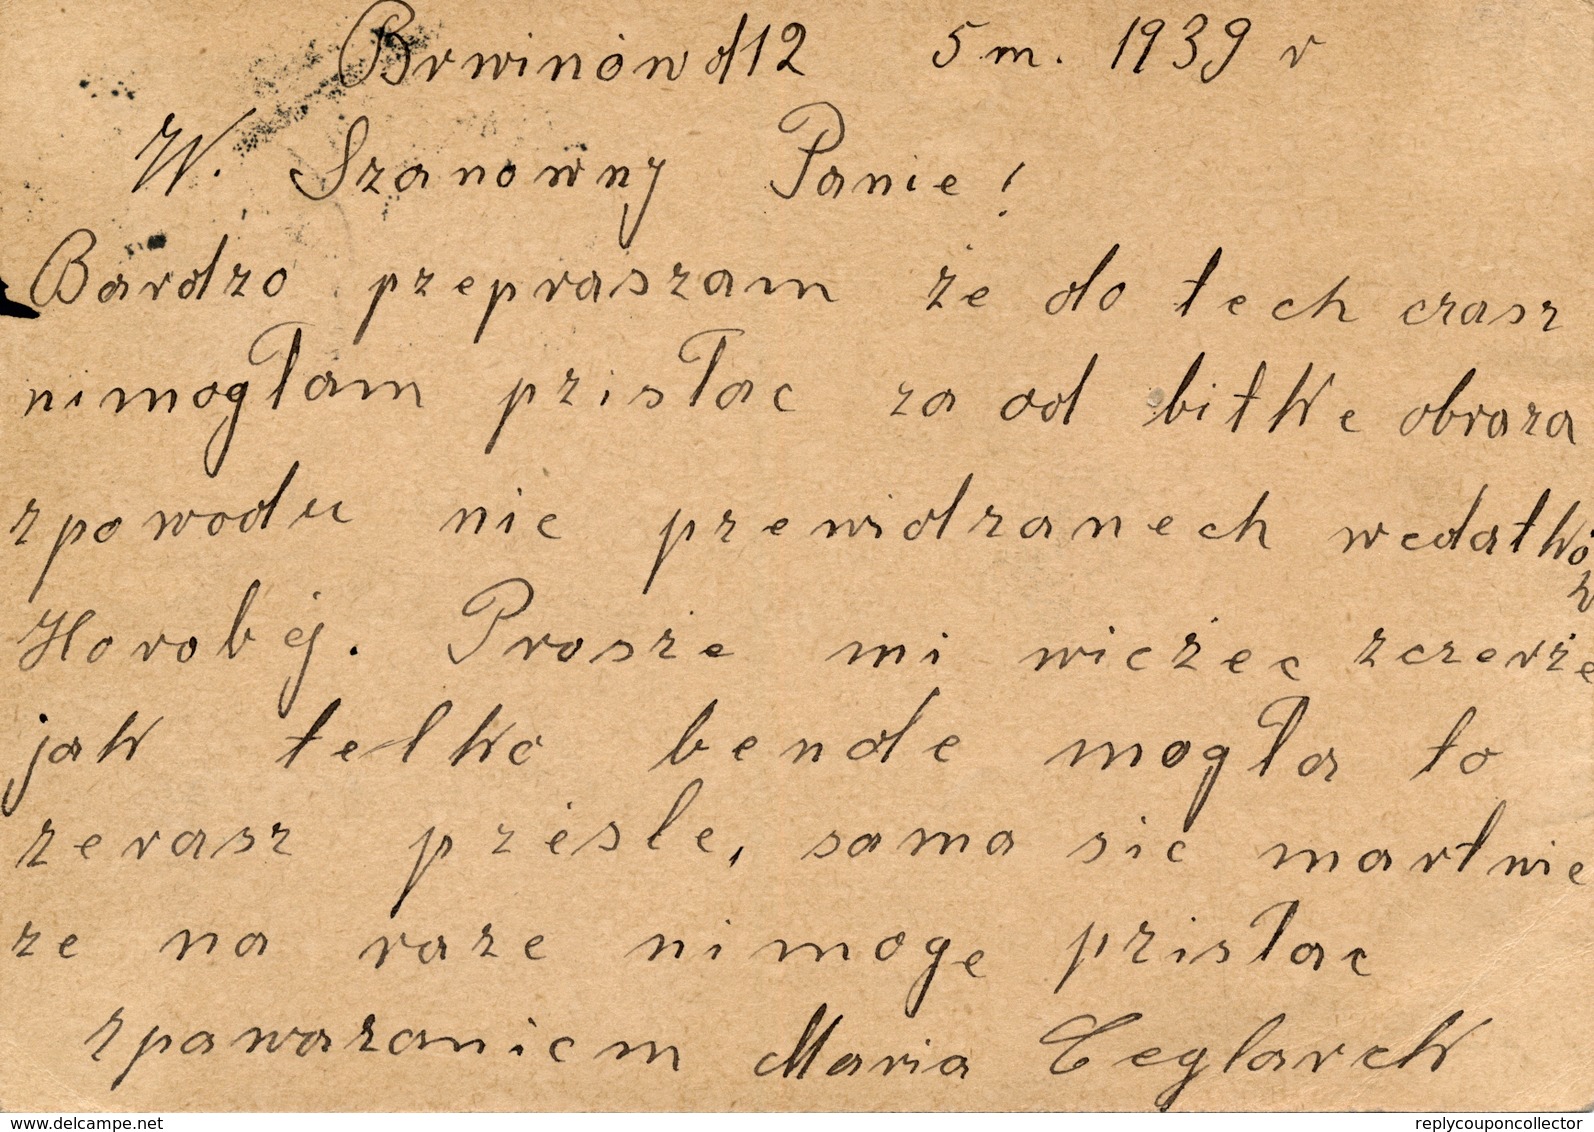 Brwinów d 12 5 m. 1939 r
W. Szanowny Panie!
Bardzo przepraszam że do tech czasz
nimogłam prisłac za od bitke obraza
zpowodu nie przewidzanech wedatków
Horobéj. Prosże mi wieżec zczerże
jak telko bende mogła to
zerasz prześle, sama sie martwie
ze na raze nimoge prisłac
zpawazaniem Maria Ceglarek
www.delcampe.net
replycouponcollector